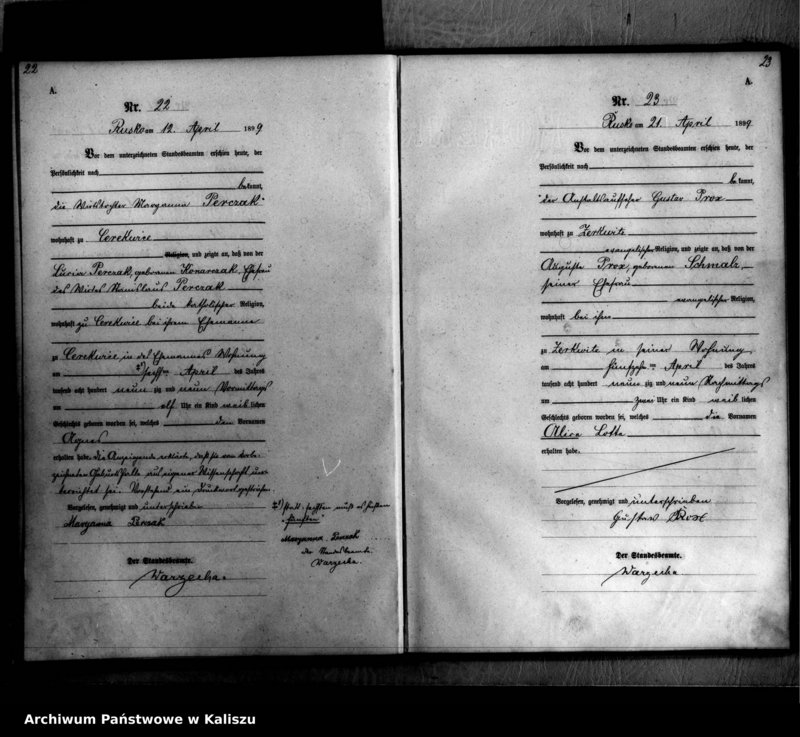 22
A.
Nr. 22
Rusko am 12. April 1899
Vor dem unterzeichneten Standesbeamten erschien heute, der
Persönlichkeit nach
bekannt,
die Wirtstochter Maryanna Perczak
wohnhaft zu Cerekwice
Religion, und zeigte an, daß von der
Lucia Perczak, geborenen Konarczak, Ehefrau
des Wirtes Stanislaus Perczak
beide katholischer Religion,
wohnhaft zu Cerekwice bei ihrem Ehemanne
zu Cerekwice, in des Ehemannes Wohnung
am sechsten April des Jahres
tausend acht hundert neun zig und neun Vormittags
um elf Uhr ein Kind weiblichen
Geschlechts geboren worden sei, welches den Vornamen
Agnes
erhalten habe. Die Anzeigende erklärte, daß sie von vorbe-
zeichneten Geburtsfalle aus eigener Wissenschaft un-
terrichtet sei. Vorstehend ein Druckwort gestrichen.
Vorgelesen, genehmigt und unterschrieben
Maryanna Perzak
Der Standesbeamte.
Warzecha.
statt sechsten muß es heißen
"fünften"
Maryanna Perzak
der Standesbeamte.
Warzecha.
23
A.
Nr. 23
Rusko am 21. April 1899
Vor dem unterzeichneten Standesbeamten erschien heute, der
Persönlichkeit nach
bekannt,
der Anstaltsaufseher Gustav Prox
wohnhaft zu Zerkwitz
evangelischer Religion, und zeigte an, daß von der
Auguste Prox, geborenen Schmalz,
seiner Ehefrau
evangelischer Religion,
wohnhaft bei ihm
zu Zerkwitz in seiner Wohnung
am fünfzehnten April des Jahres
tausend acht hundert neun zig und neun Nachmittags
um zwei Uhr ein Kind weiblichen
Geschlechts geboren worden sei, welches die Vornamen
Alice Lotte
erhalten habe.
Vorgelesen, genehmigt und unterschrieben
Gustav Prox
Der Standesbeamte.
Warzecha.
Archiwum Państwowe w Kaliszu